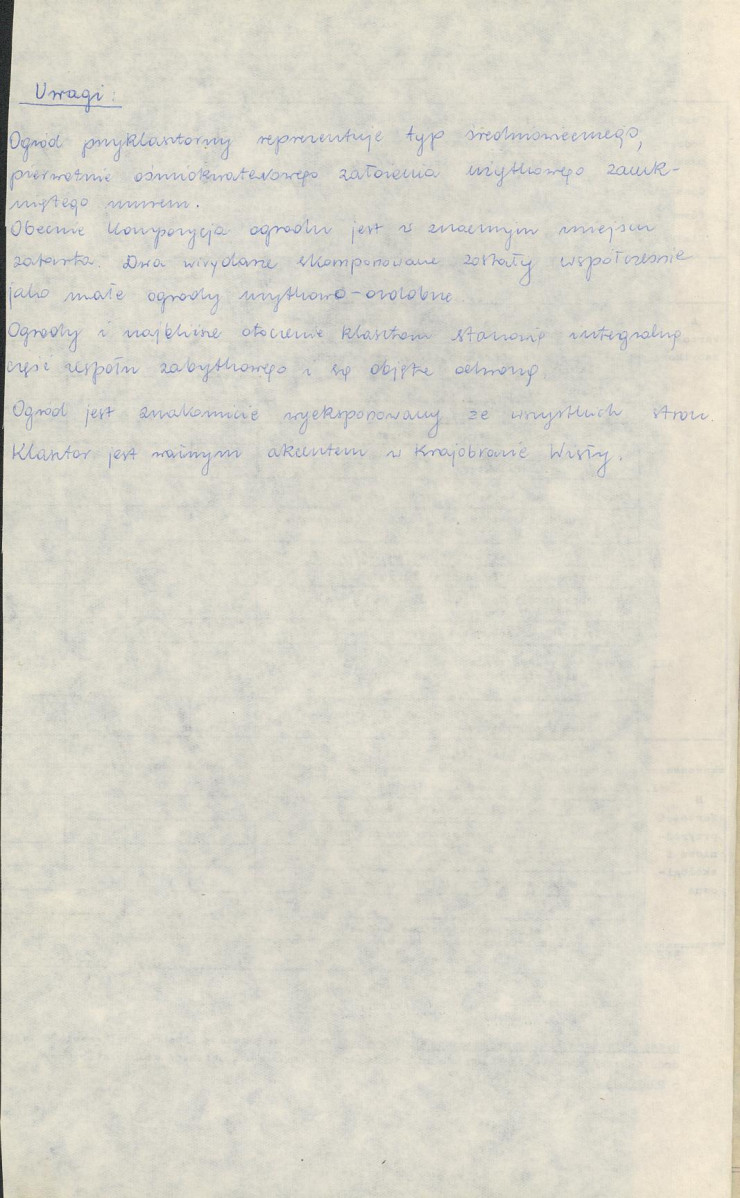 Uwagi:
Ogród przyklasztorny reprezentuje typ średniowiecznego,
pierwotnie ośmiokwaterowego założenia użytkowego zamk-
niętego murem.
Obecnie kompozycja ogrodu jest w znacznym miejscu
zatarta. Dwa wirydarze skomponowane zostały współcześnie
jako małe ogrody użytkowo-ozdobne.
Ogrody i najbliższe otoczenie klasztoru stanowią integralną
część zespołu zabytkowego i są objęte ochroną.
Ogród jest znakomicie wyeksponowany ze wszystkich stron.
Klasztor jest ważnym akcentem w krajobrazie Wisły.